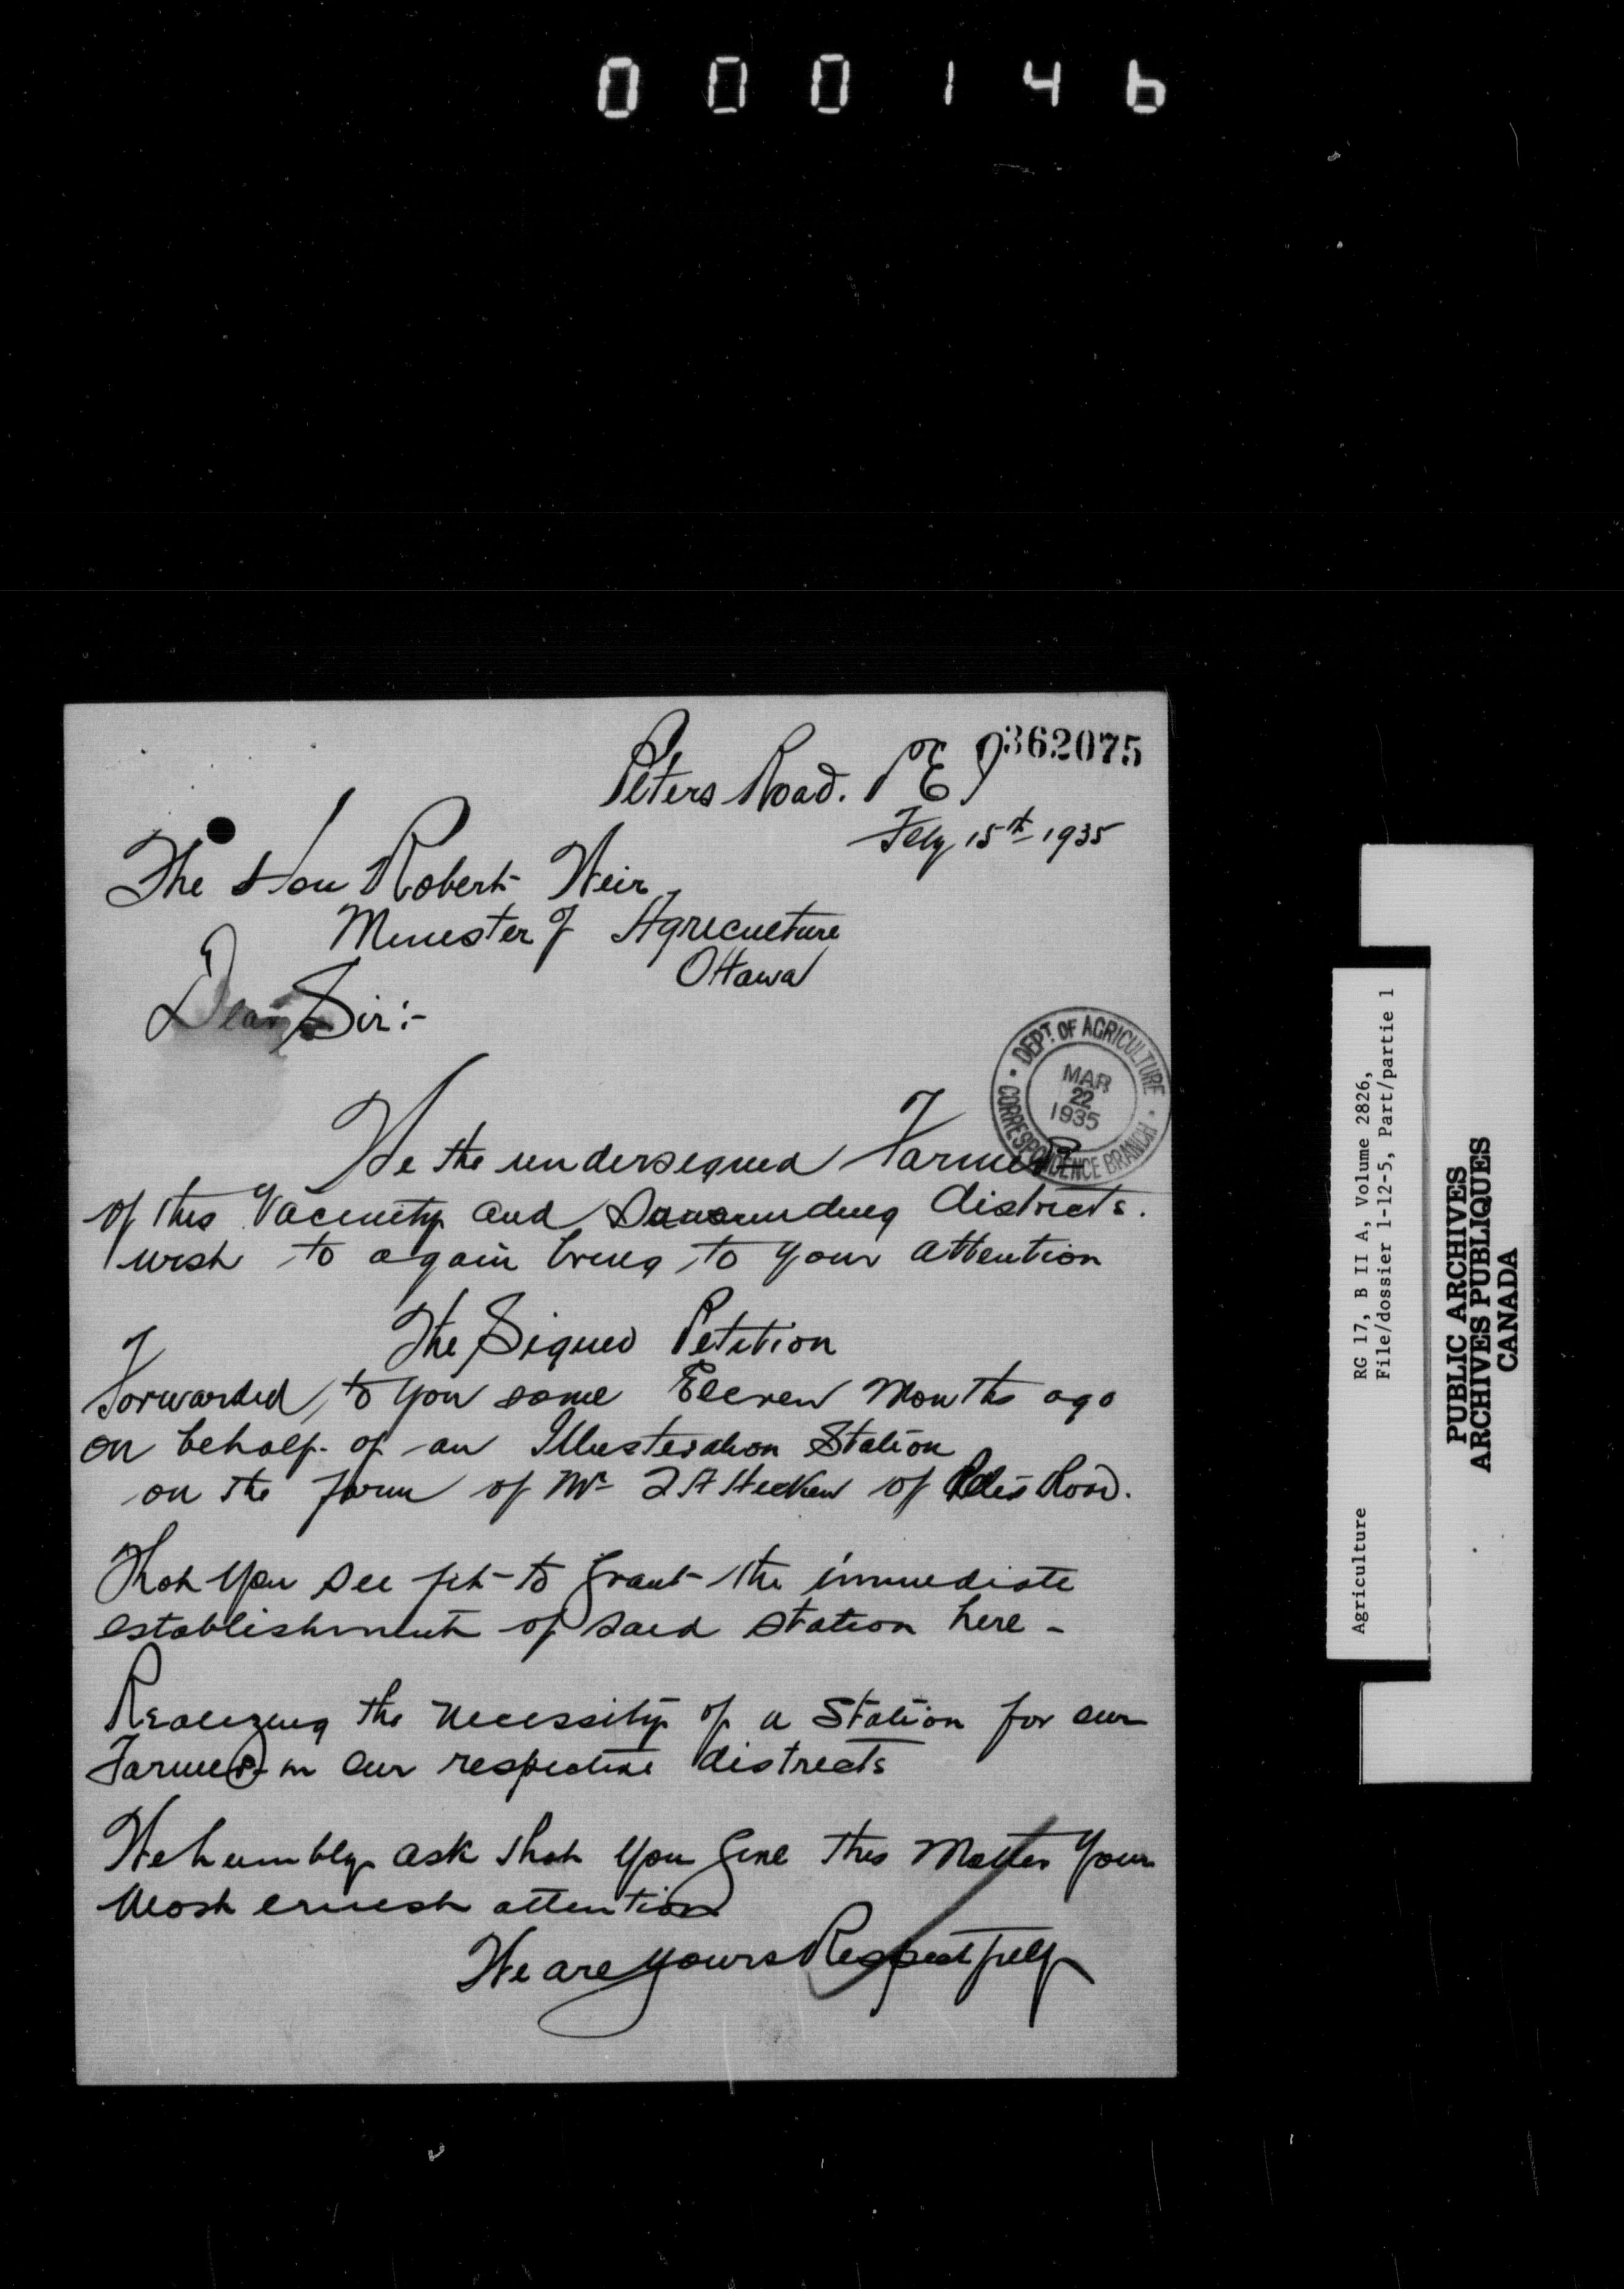 000146
362075
Peters Road. P E I
Feby 15th 1935
The Hon Robert Weir
Minester of Agreculture
Ottawa
Dear Sir:-
DEPT. OF AGRICULTURE
MAR
22
1935
CORRESPONDENCE BRANCH
We the undersegned Farmers
of this Vacenity and districts.
wish to again breng to your attention
The Signed Petition
Forwarded, to you some Eleven Months ago
on behalf of an Illusteration Station
on the farm of Mr of Peters Road.
That you see fit to grant the immediate
establishment of said station here -
Realizeng the necessity of a Station for our
Farmers in our respective destrects
We humbly ask that you give this Matter your
Most ernest attention
We are yours Respectfully
Agriculture RG 17, B II A, Volume 2826,
File/dossier 1-12-5, Part/partie 1
PUBLIC ARCHIVES
ARCHIVES PUBLIQUES
CANADA